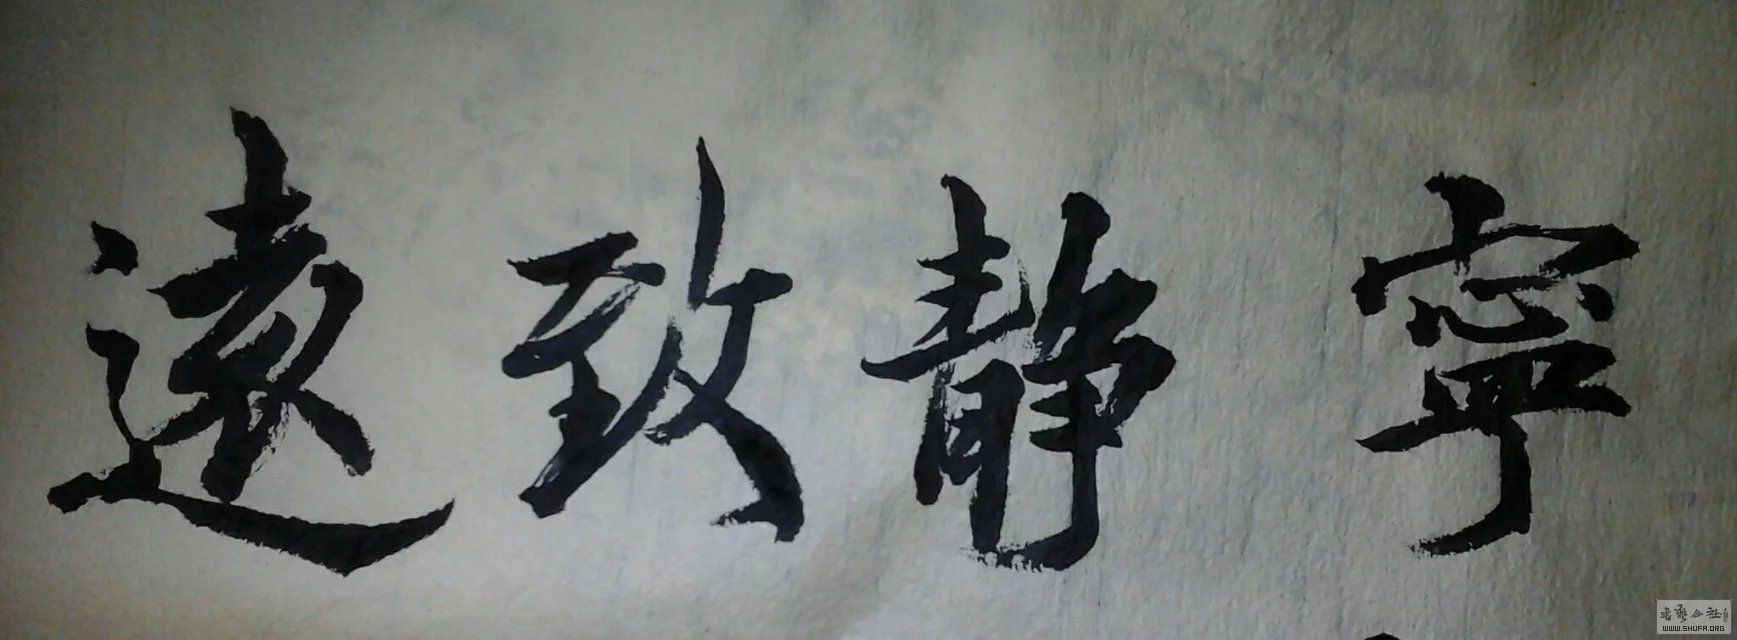 寧静致遠
書藝公社
WWW.SHUFA.ORG